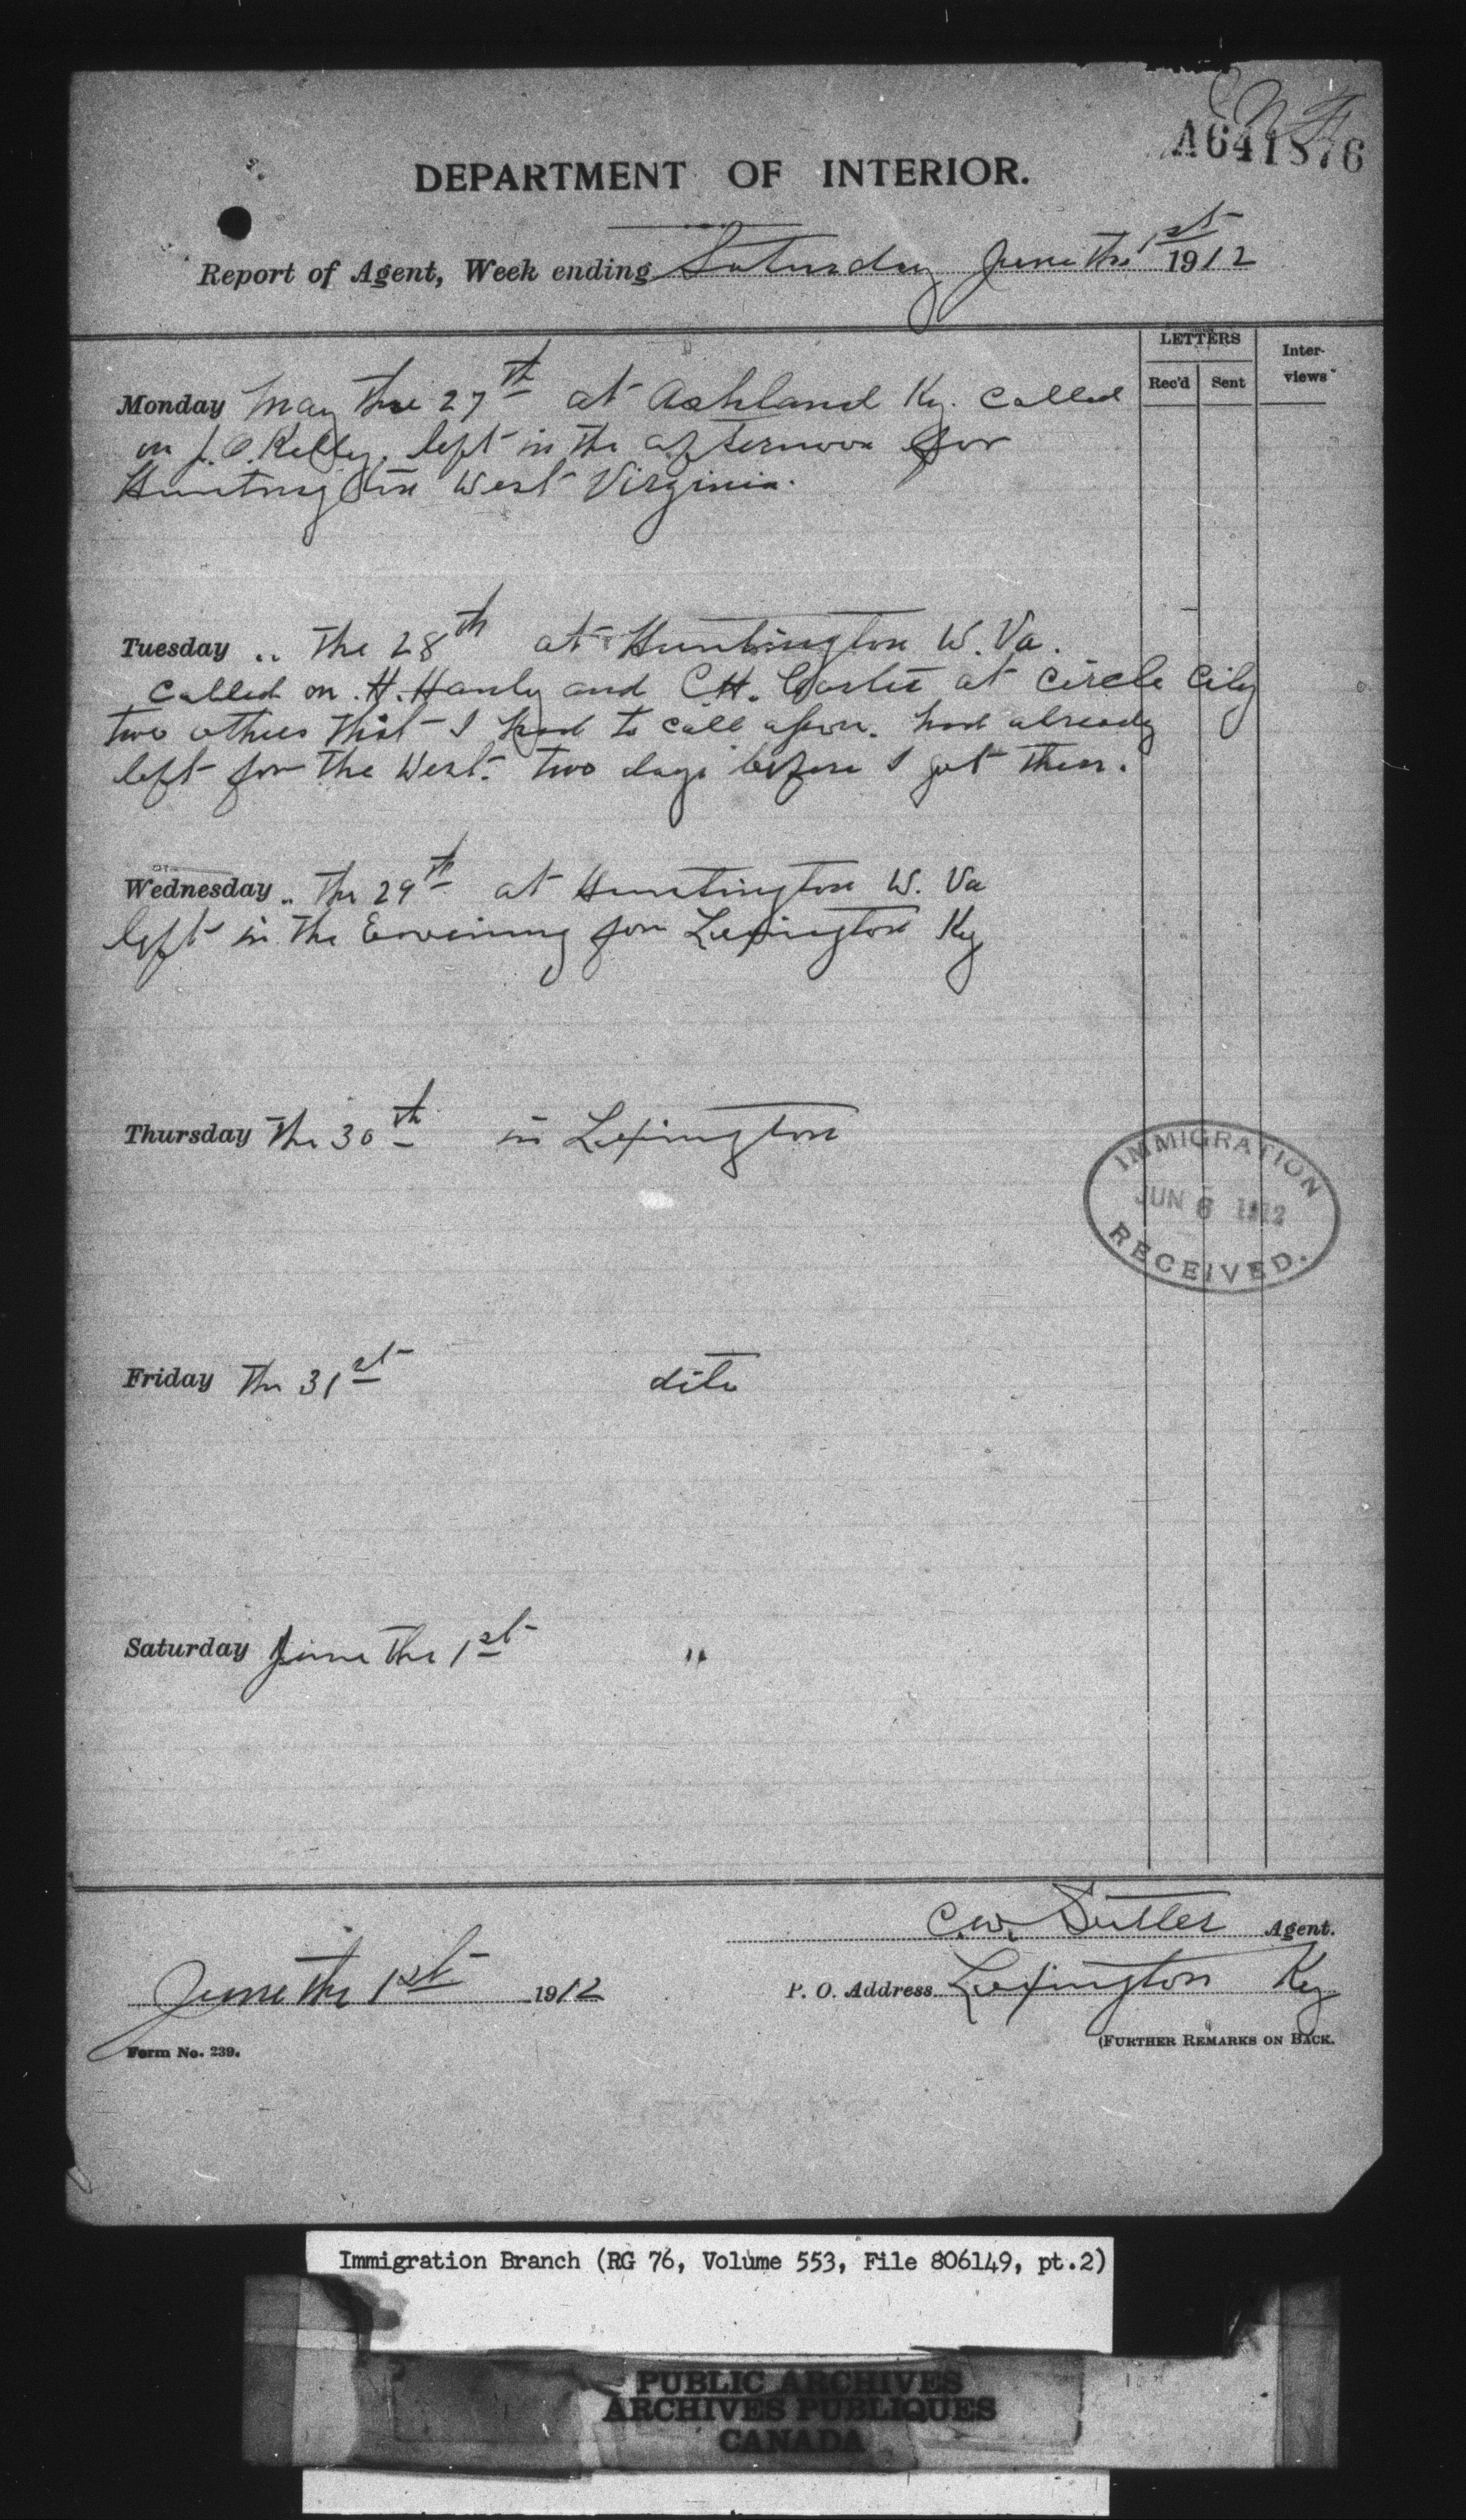 A641876
DEPARTMENT OF INTERIOR.
Report of Agent, Week ending Saturday June the 1st 1912
LETTERS
Inter-
views
Rec'd Sent
Monday May the 27th at Ashland Ky. Called
on J. O. Kelley, left in the afternoon for
Huntington West Virginia.
Tuesday .. The 28th at Huntington W. Va.
Called on H. Hanly and C.H. at Circle City
two others that I had to call upon. had already
left for the West. two days before I got there.
Wednesday .. The 29th at Huntington W. Va
left in the Evening for Lexington Ky
Thursday The 30th in Lexington
IMMIGRATION
JUN 6 1912
RECEIVED.
Friday The 31st dito
Saturday June The 1st "
C.W. Sutter Agent.
June the 1st 1912
P. O. Address Lexington Ky
(FURTHER REMARKS ON BACK.
Form No. 239.
Immigration Branch (RG 76, Volume 553, File 806149, pt.2)
PUBLIC ARCHIVES
ARCHIVES PUBLIQUES
CANADA